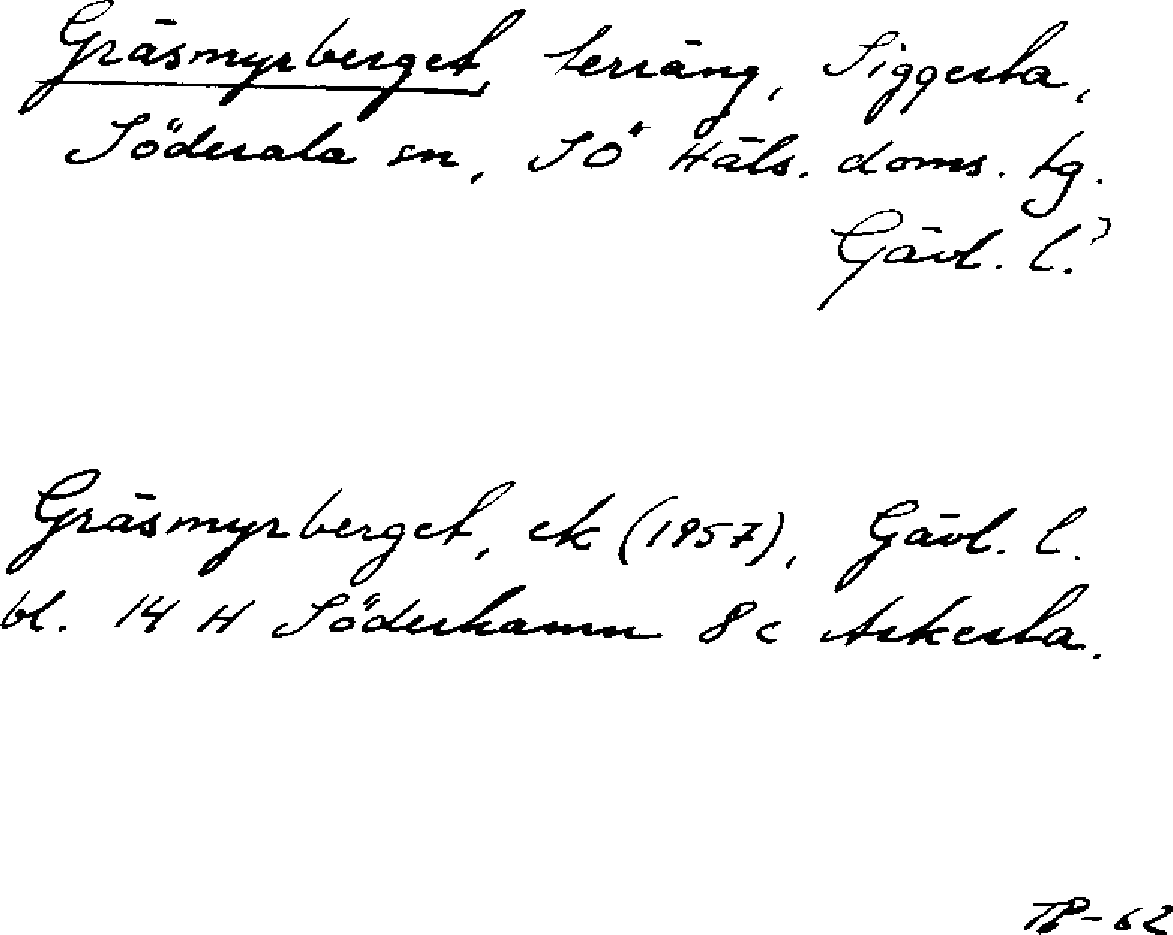 Gräsmyrberget, terräng, Siggesta,
Söderala sn, SÖ Häls. doms. tg.
Gävl. l.
Gräsmyrberget, ek (1957), Gävl. l.
bl. 14 H Söderhamn 8 c Askesta.
TP-62